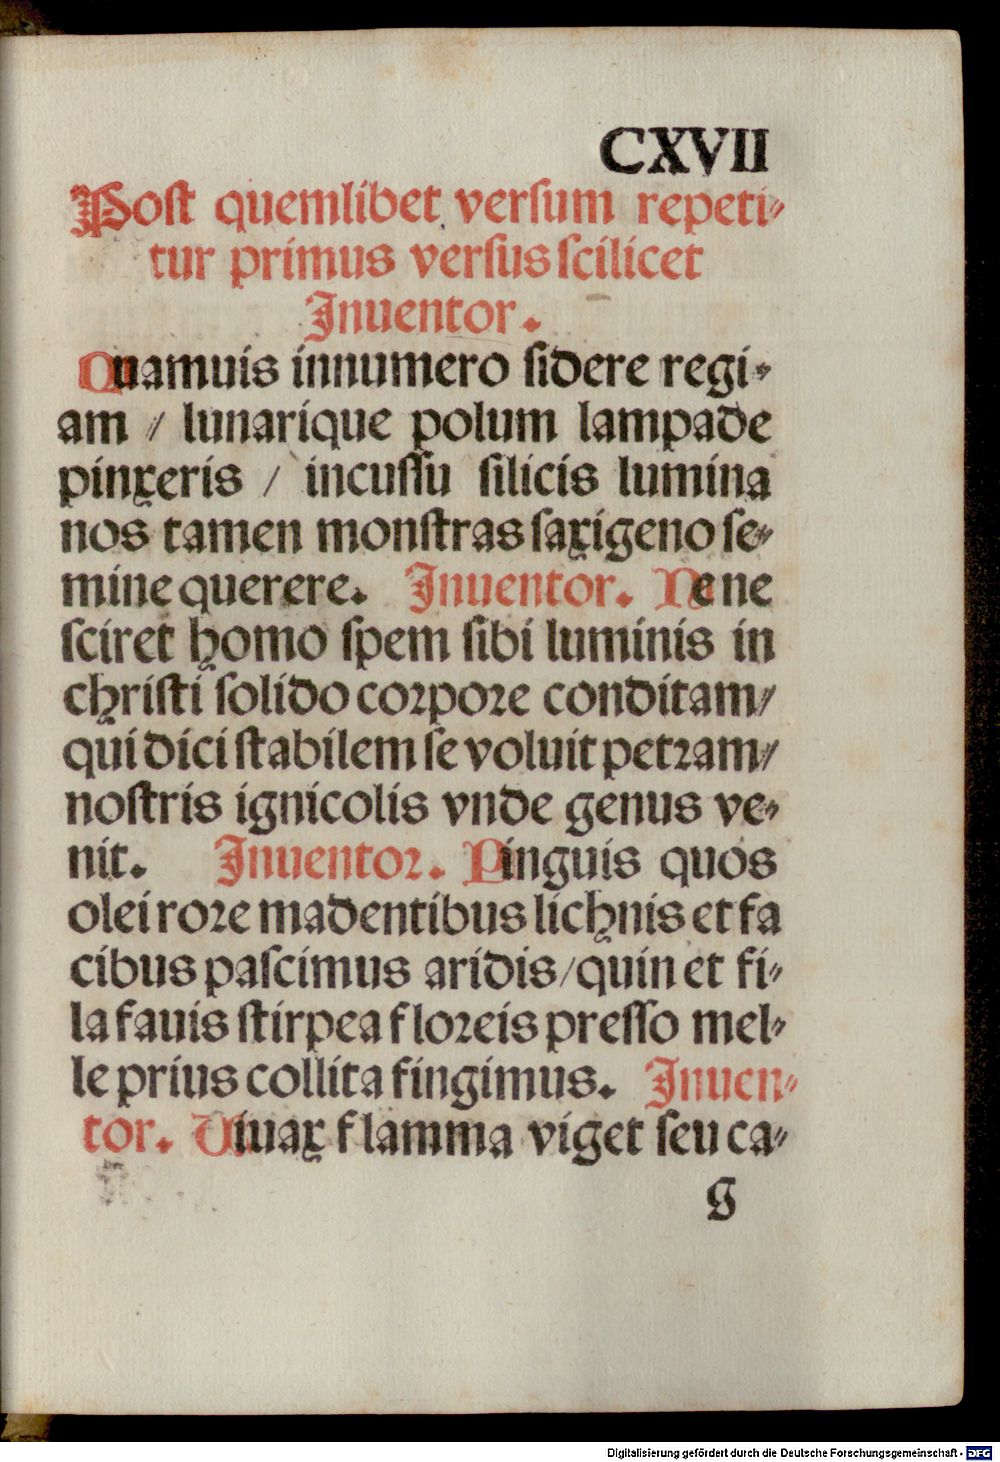 CXVII
Poſt quemlibet verſum repeti⸗
tur primus verſus ſcilicet
Inuentor.
Quamuis innumero ſidere regi⸗
am / lunarique polum lampade
pinxeris / incuſſu ſilicis lumina
nos tamen monſtras ſaxigeno ſe⸗
mine querere. Inuentor. Ne ne
ſciret homo ſpem ſibi luminis in
chriſti ſolido corpore conditam/
qui dici ſtabilem ſe voluit petram/
noſtris ignicolis vnde genus ve⸗
nit. Inuentor. Pinguis quos
olei rore madentibus lichnis et fa
cibus paſcimus aridis/quin et fi⸗
la fauis ſtirpea floreis preſſo mel⸗
le prius collita fingimus. Inuen⸗
tor. Viuax flamma viget ſeu ca⸗
G
Digitalisierung gefördert durch die Deutsche Forschungsgemeinschaft - DFG